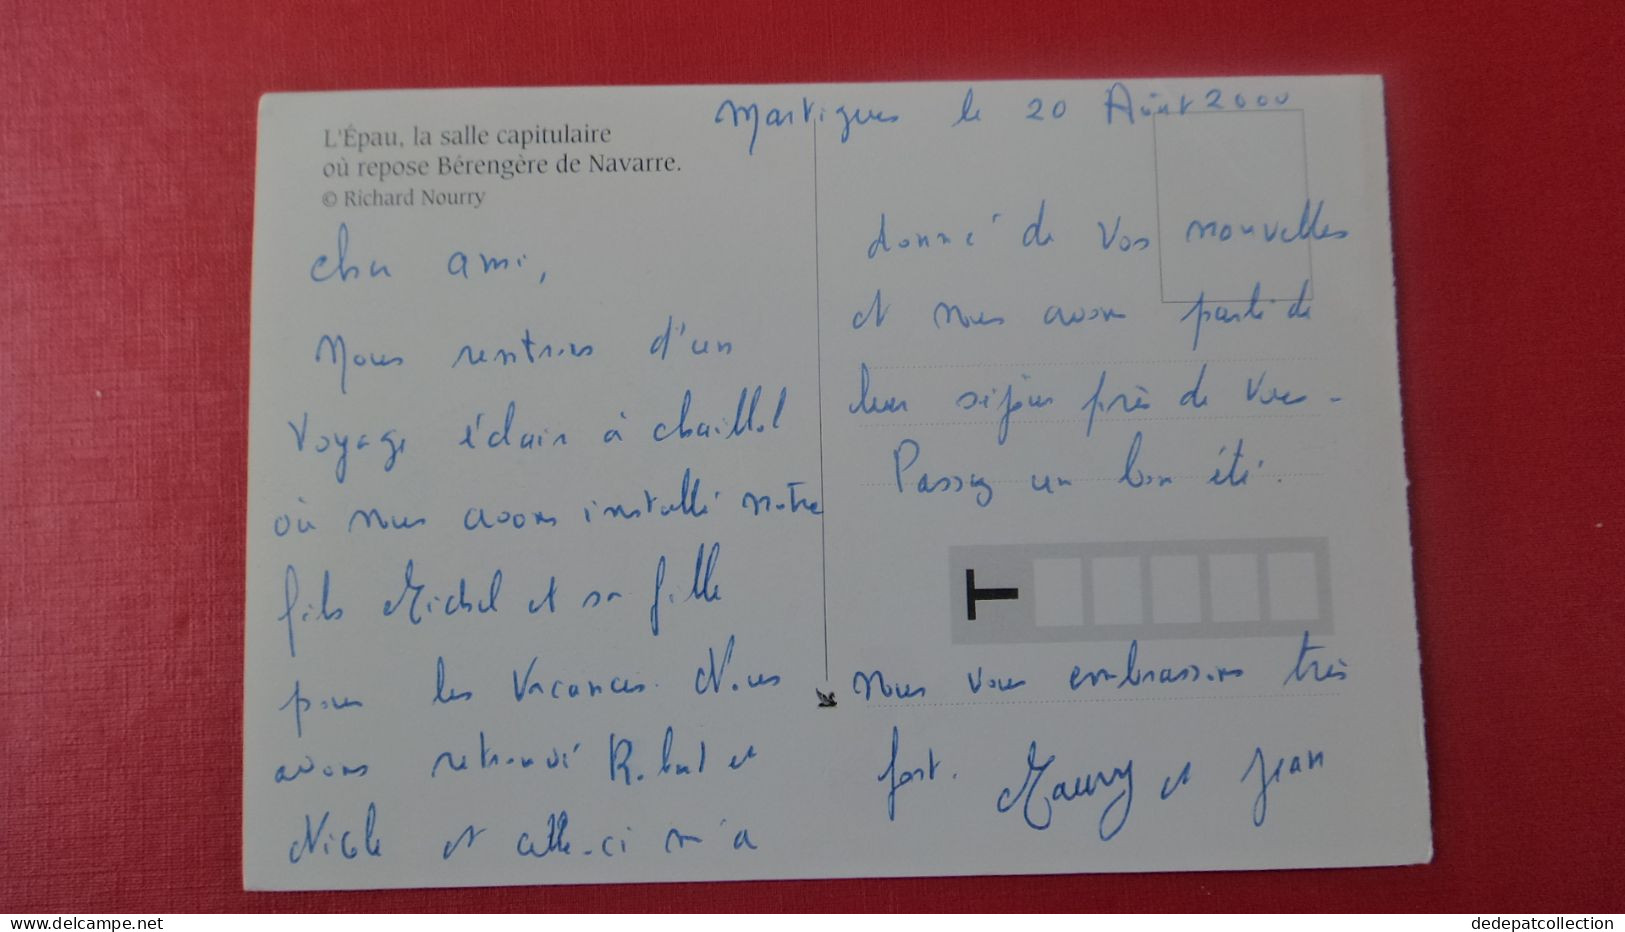 L'Épau, la salle capitulaire
où repose Bérengère de Navarre.
© Richard Nourry
Martigues le 20 Août 2000
Cher ami,
Nous rentrons d'un
voyage éclair à Chaillol
où nous avons installé notre
fils Michel et sa fille
pour les vacances. Nous
avons retrouvé Robert et
Nicole et celle-ci m'a
donné de vos nouvelles
et nous avons parlé de
leur séjour près de vous.
Passez un bon été.
T
Nous vous embrassons très
fort. et Jean
dedepatcollection